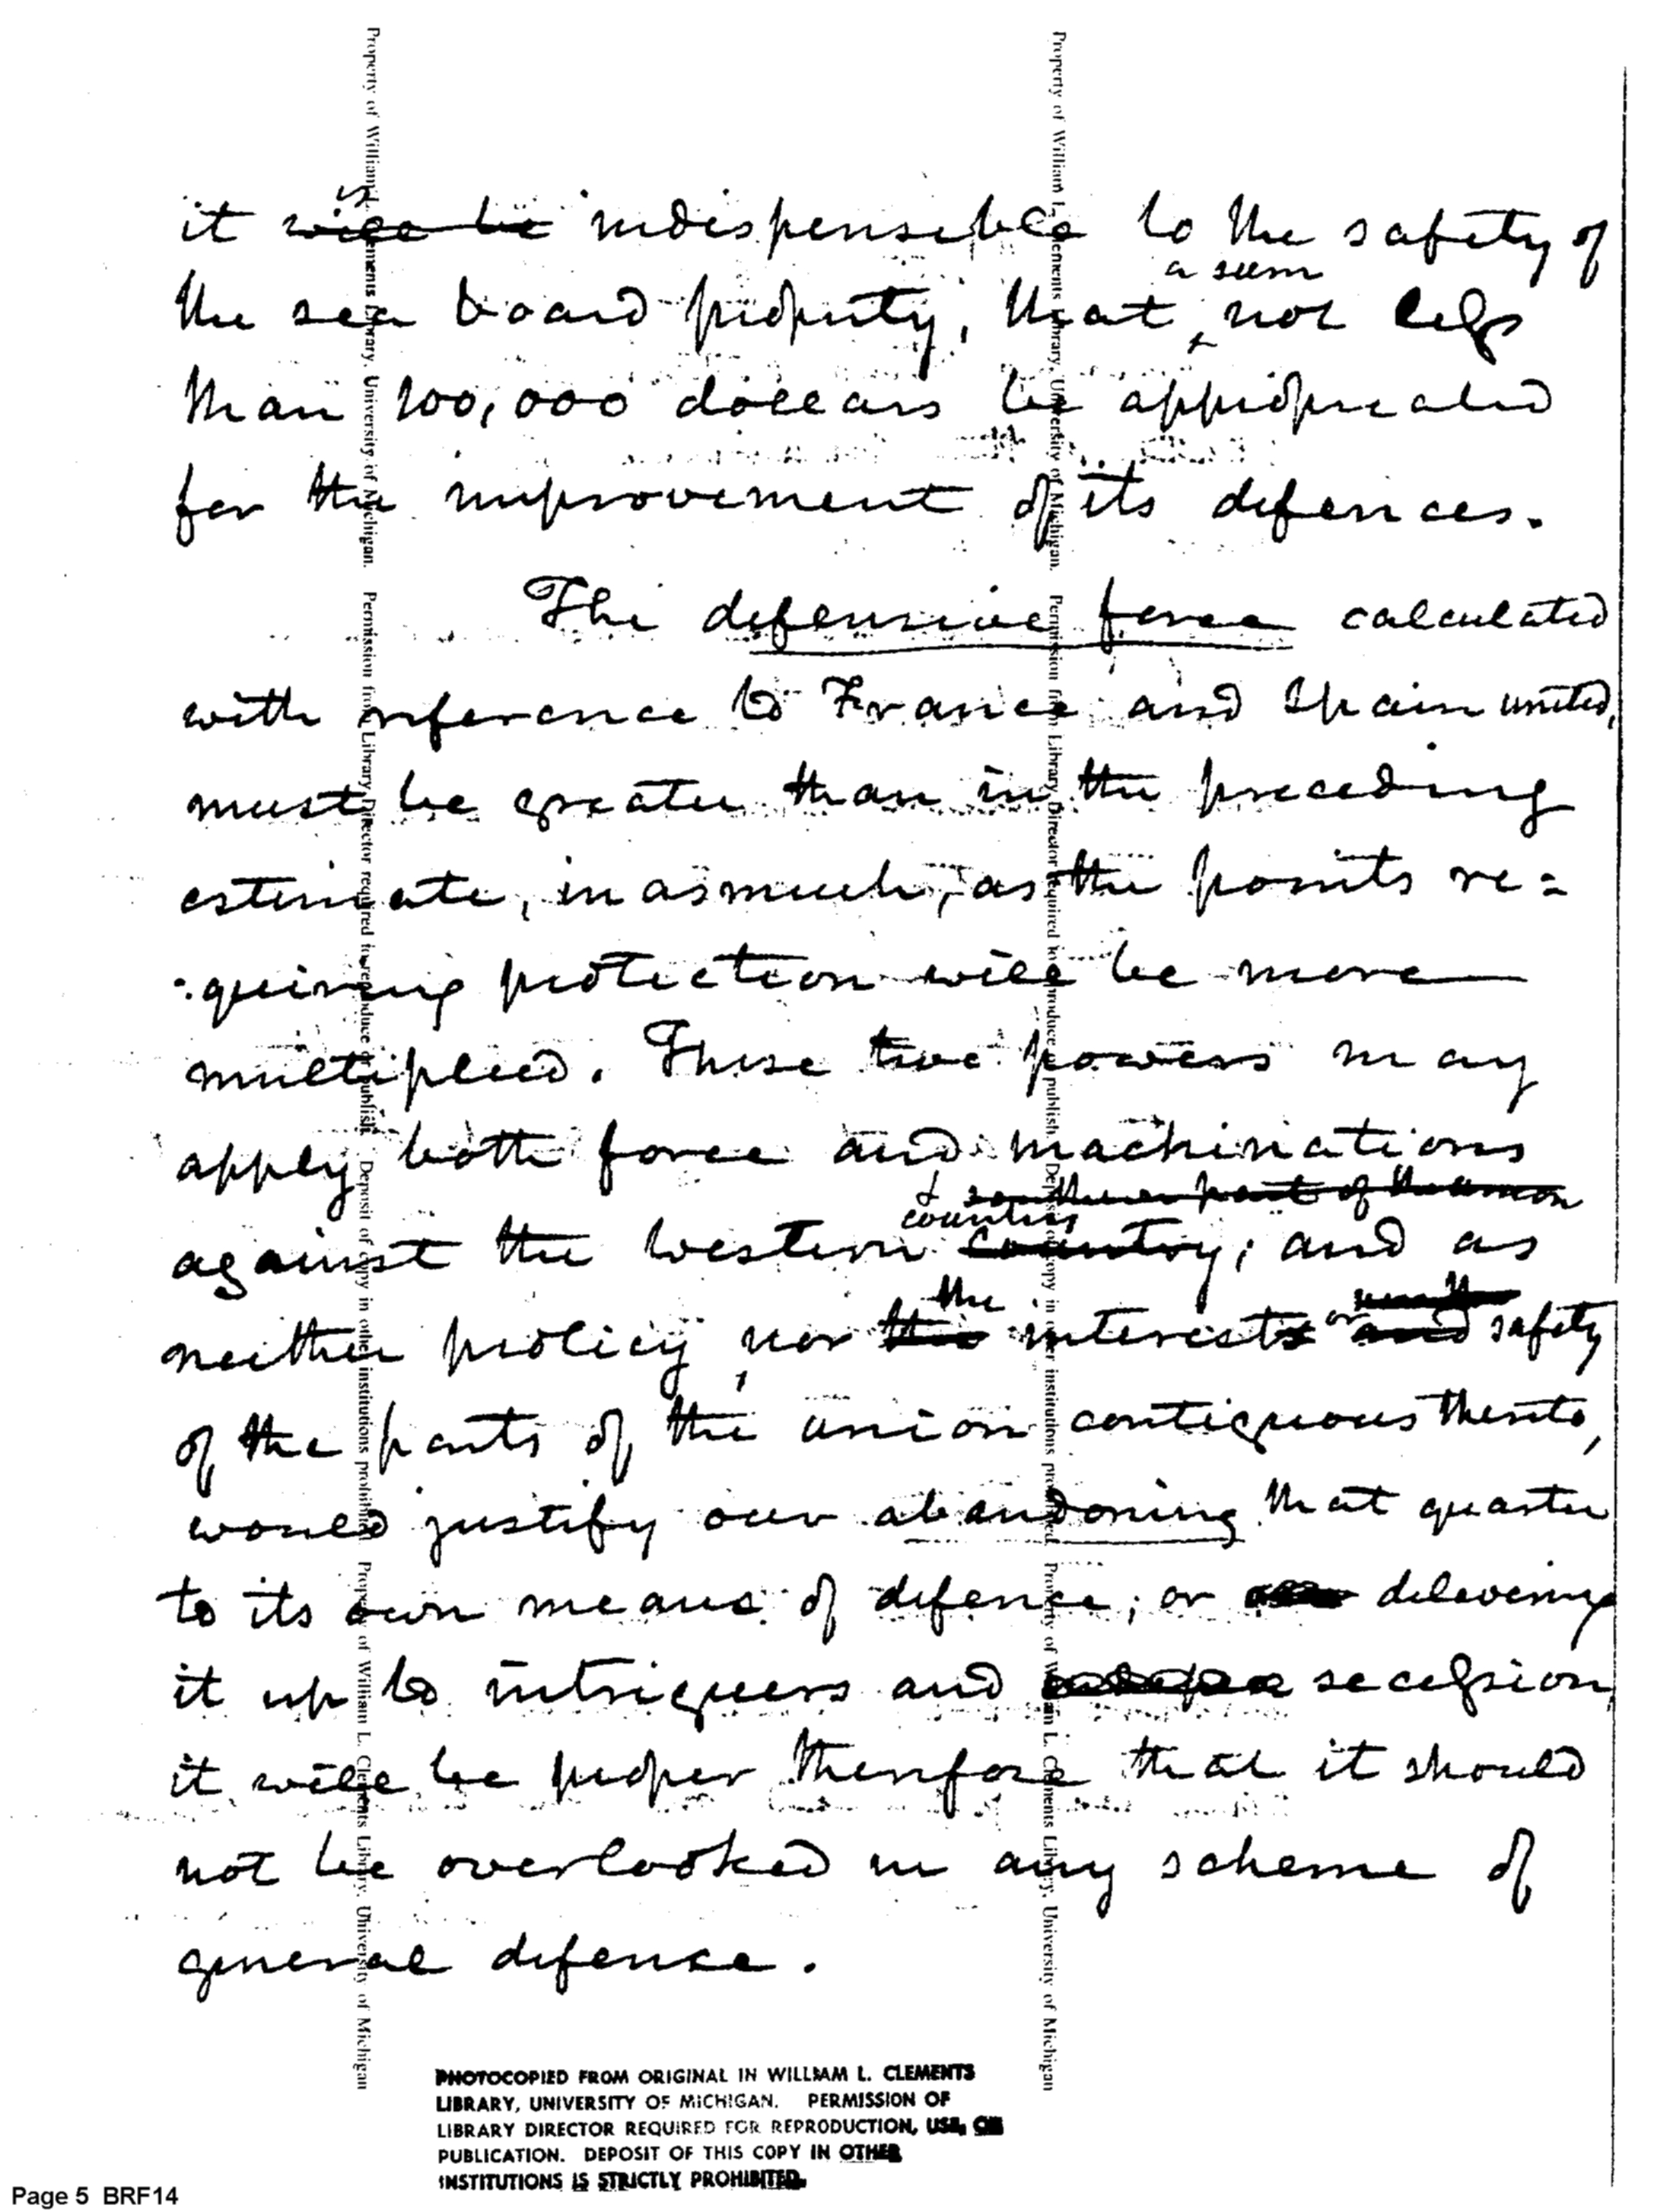 is
it will be indispensible to the safety of
a sum
the sea board property, that not less
than 100,000 dollars be appropriated
for the improvement of its defences.
The defensive force calculated
with reference to France and Spain united,
must be greater than in the preceding
estimate, in asmuch, as the points re=
:quiring protection will be more
multiplied. These two powers may
apply both force and machinations
& southern part of the union
countries
against the Western country; and as
the
neither policy, nor the interests or and safety
of the parts of the union contiguous thereto,
would justify our abandoning that quarter
to its own means of defence, or delivering
it up to intriguers and secession,
it will be proper therefore that it should
not be overlooked in any scheme of
general defence.
Property of William L. Clements Library, University of Michigan. Permission from Library Director required to reproduce or publish. Deposit of copy in other institutions prohibited. Property of William L. Clements Library, University of Michigan
Property of William L. Clements Library, University of Michigan. Permission from Library Director required to reproduce or publish. Deposit of copy in other institutions prohibited. Property of William L. Clements Library, University of Michigan
PHOTOCOPIED FROM ORIGINAL IN WILLIAM L. CLEMENTS
LIBRARY, UNIVERSITY OF MICHIGAN. PERMISSION OF
LIBRARY DIRECTOR REQUIRED FOR REPRODUCTION, USE, OR
PUBLICATION. DEPOSIT OF THIS COPY IN OTHER
INSTITUTIONS IS STRICTLY PROHIBITED.
Page 5 BRF14